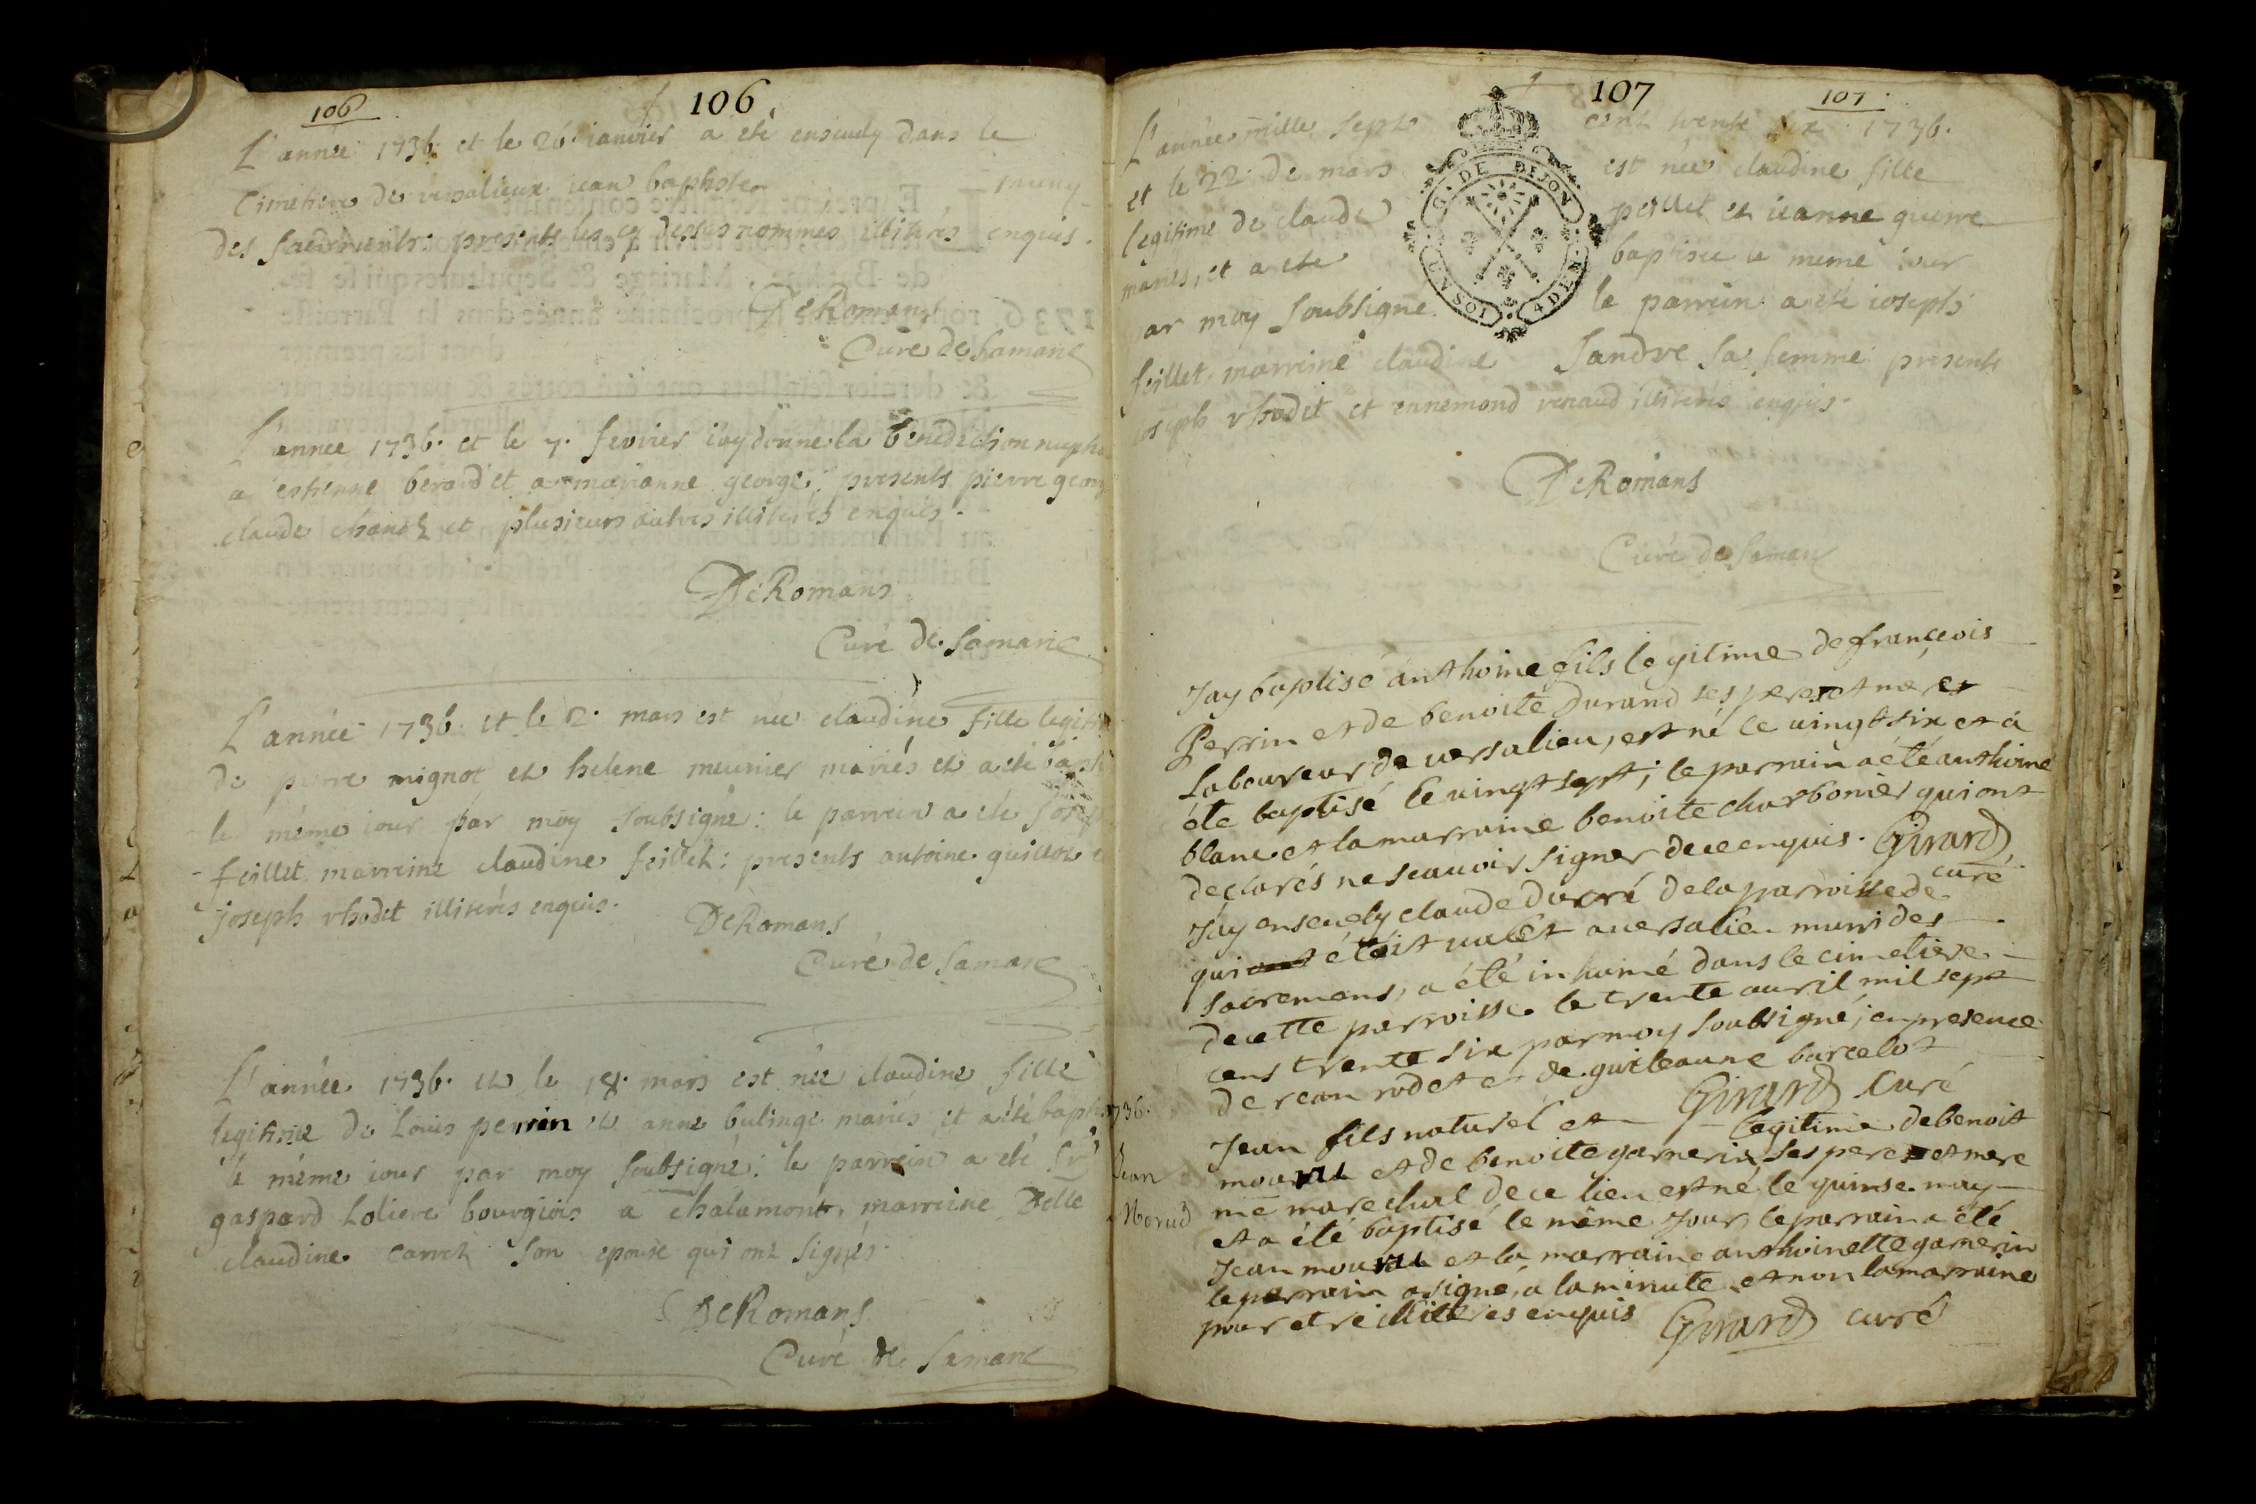 106
106
L'année 1736. et le 26 ianvier a eté enseuely dans le
cimetiere de versalieux iean baptiste muny
des sacrements: presents les cy dessus nommes illiterés enquis.
DeRomans
Curé de Samans
L'annee 1736. et le 7. fevrier i'ay donné la benediction nuptia
a estienne berard et a marianne george: presents pierre georg
claude et plusieurs autres illiterés enquis.
DeRomans
Curé de Samans
L'année 1736. et le 2. mars est née claudine fille legiti
de pierre mignot et helene meunier mariés et a eté bapti
le méme iour par moy soubsigné: le parrein a eté Josep
feillet marreine claudine feillet: presents antoine guillot e
joseph rhodet illiterés enquis.
DeRomans
Curé de Samans
L'année 1736. et le 18. mars est née claudine fille
legitime de Louis perrin et anne bulinge mariés et a eté bapti
le méme iour par moy soubsigné: le parrein a eté Sr
gaspard Loliere bourgiois a chalamont, marreine Delle
claudine carret son epouse qui ont signés.
DeRomans
Curé de Samans
107
107
G. DE DIJON
4 DEN
L'année mille sept cent trente six 1736.
et le 22. de mars est née claudine fille
legitime de claude pellet et ieanne guerre
mariés, et a eté baptisée le meme iour
ar moy soubsigné. le parrein a eté ioseph
feillet marreine claudine Sandre sa femme presents
oseph rhodet et ennemond renaud illiterés enquis.
DeRomans
Curé de Samans
Jay baptisé anthoine fils legitime de françois
Perrin et de benoite Durand ses pere et mere
Laboureur de versalieu, est né le vingt six et à
été baptisé le vingt sept; le parrain a été anthoine
blanc et la marraine benoite charbonier qui ont
declarés ne scauoir signer de ce enquis. Girard
curé
Jay enseuely claude ducré de la parroisse de
qui étoit valet a versalieu muni des
sacremens, a été inhumé dans le cimetiere
de cette parroisse le trente auril mil sept
cens trente six par moy soubsigné, en presence
de jean rodet et de guileaume barcelot
Girard Curé
1736.
Jean
Morud
Jean fils naturel et legitime de benoit
et de benoite garnerin ses pere et mere
me marechal de ce lieu est né le quinse may
et a été baptisé le même Jour, le parrain a été
Jean et la marraine anthoinette garnerin
le parrain a signé, a la minute et non la marraine
pour etre illiteres enquis Girard curé